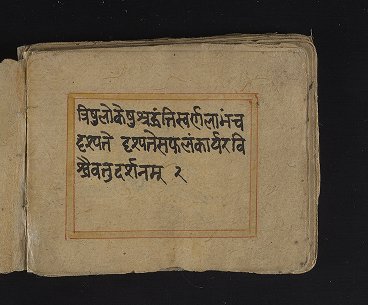 त्रिषुलोकेषुश्चद्धंतिस्वर्णलाभंच
दृश्यते दृश्यतेसफलंकार्यरवि
श्चैवनुदर्शनम् २